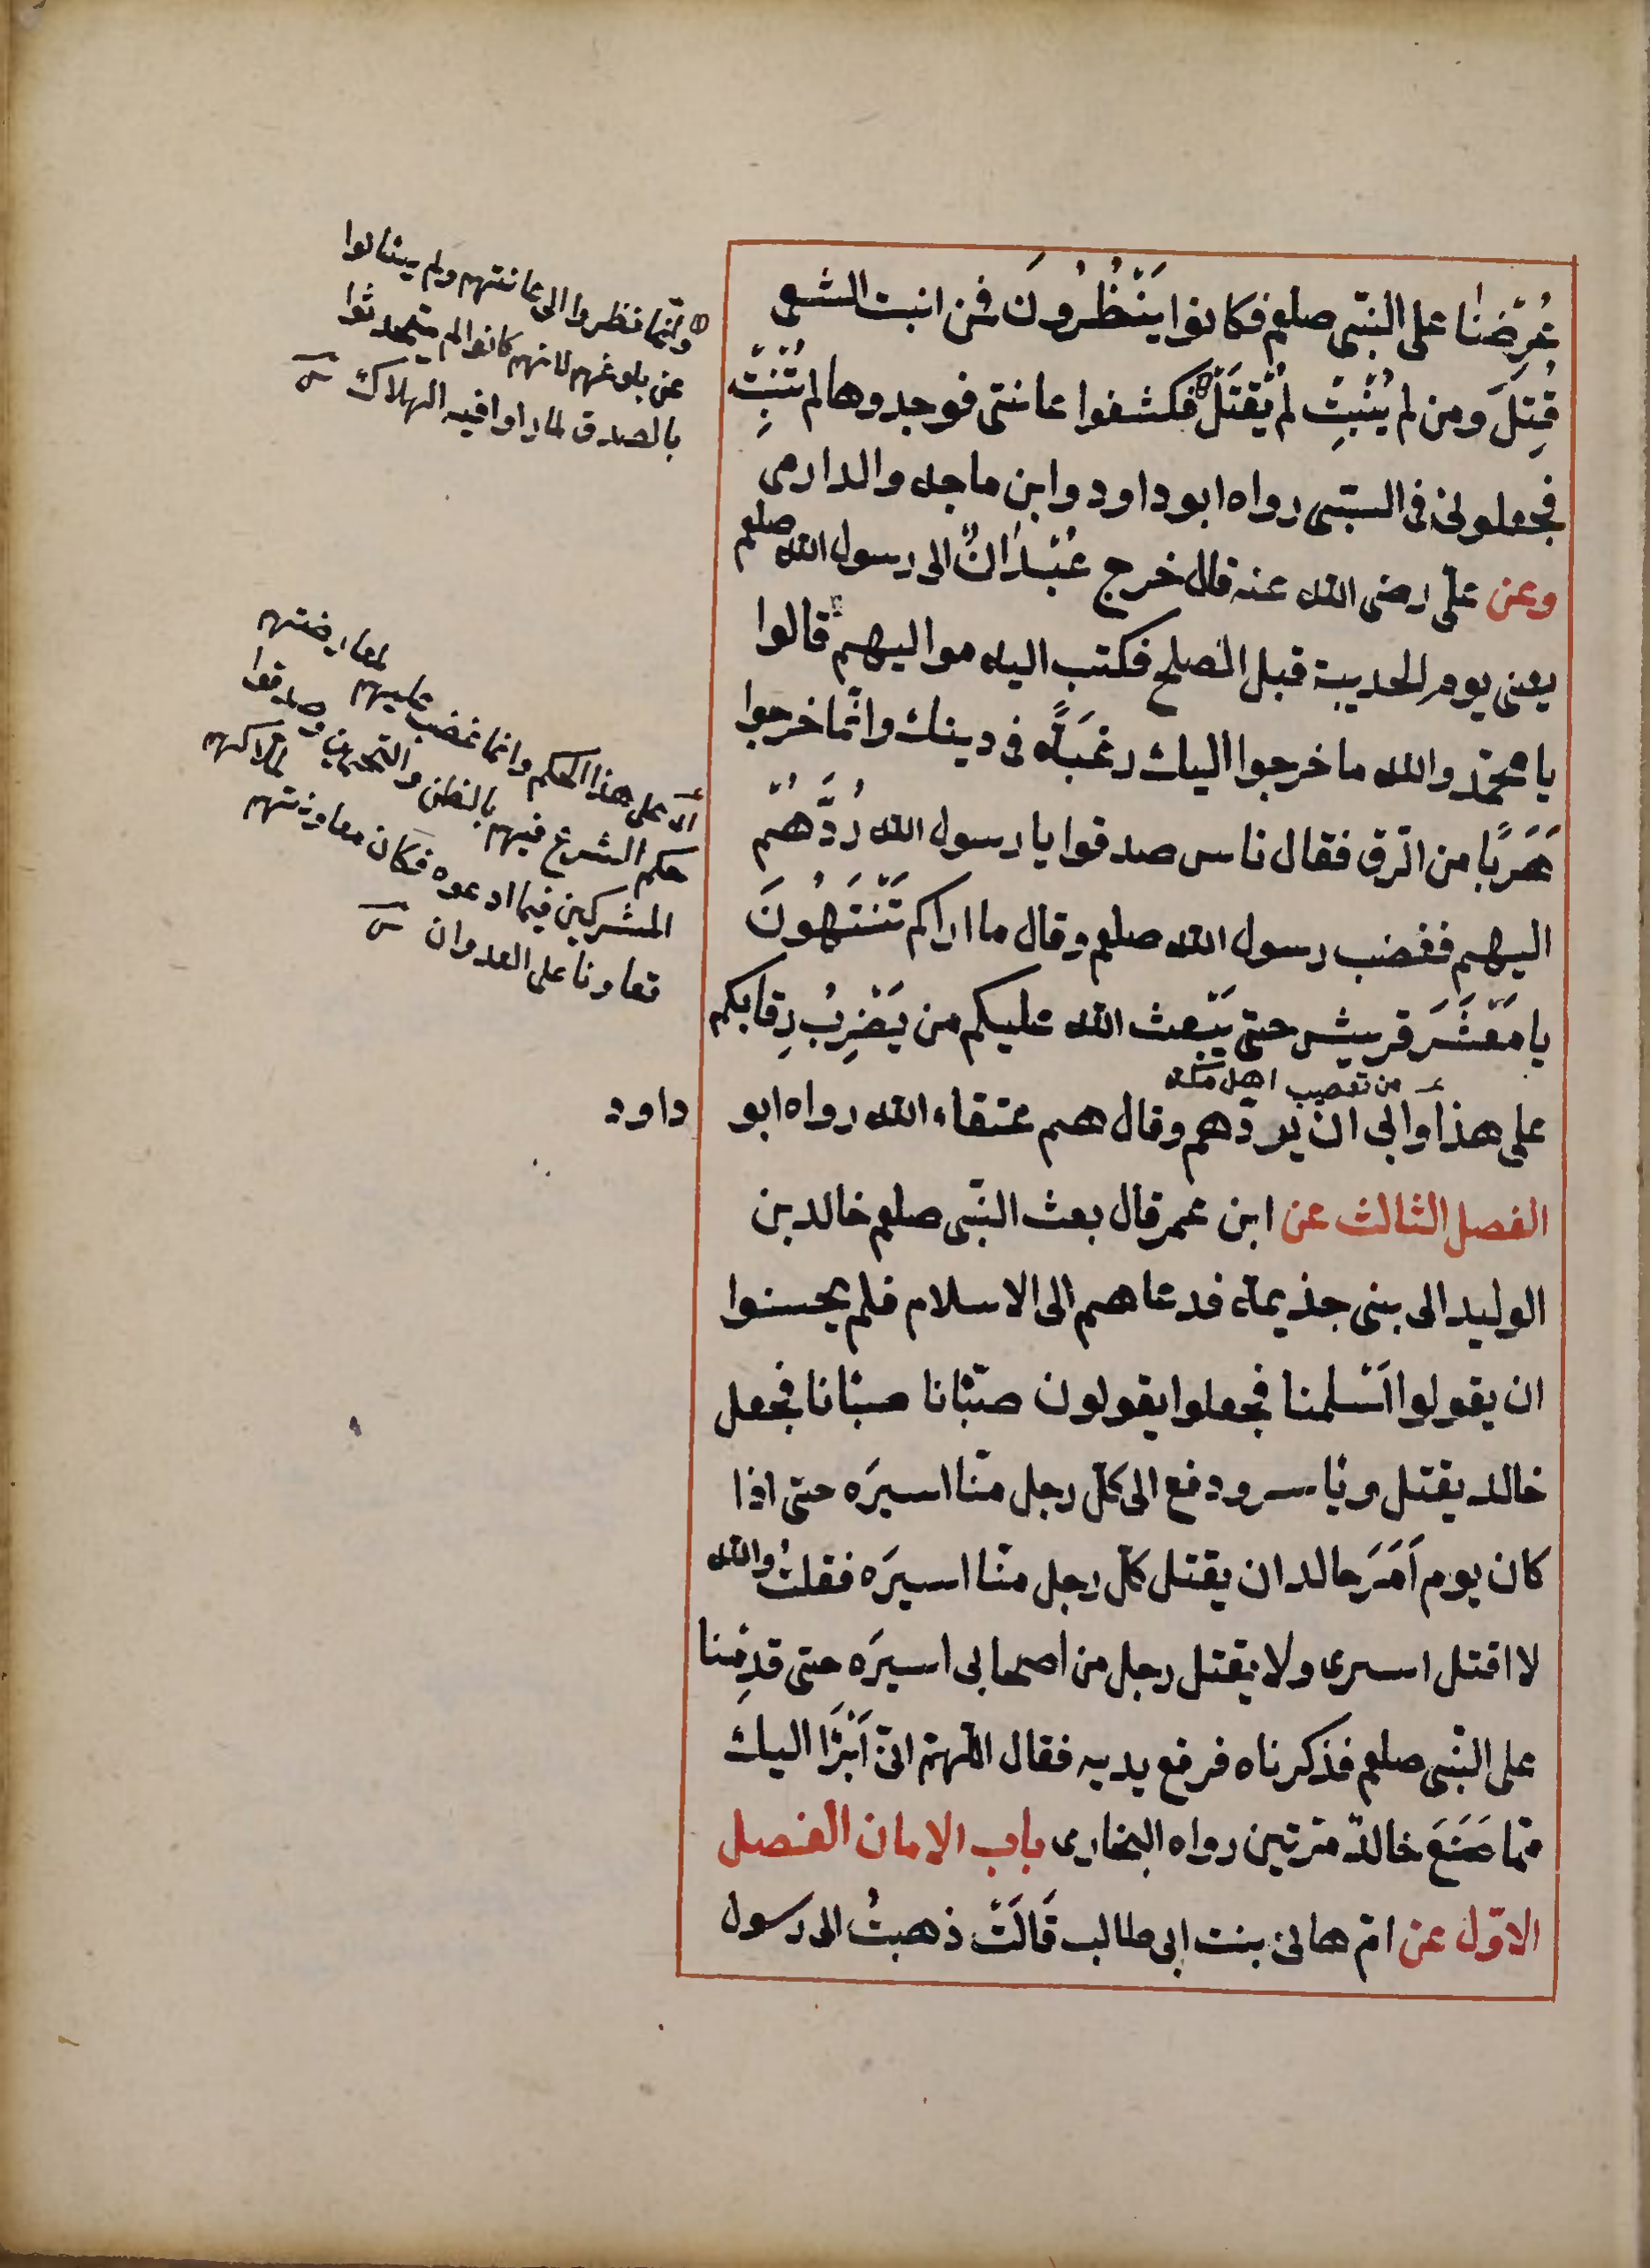 عُرِضْنا على النّبى صلعم فكانوا يَنْظُرُونَ فمن انبت الشعر
قُتِلَ ومن لم يُنْبِتْ لم يُقْتَلْ فكشفوا عانتى فوجدوها لم تُنْبِتْ
فجعلونى فى السّبى رواه ابو داود وابن ماجه والدارمى
وعن علىّ رضى الله عنه قال خرج عُبْدَانٌ الى رسول الله صلعم
يعنى يوم الحديبية قبل الصلح فكتب اليه مواليهم قالوا
يا محمّد والله ما خرجوا اليك رغبَةً فى دينك وانّما خرجوا
هَرَبًا من الرّق فقال ناس صدقوا يا رسول الله رُدَّهُمْ
اليهم فغضب رسول الله صلعم وقال ما اراكم تَنْتَهُونَ
يا مَعْشَرَ قريش حتى يَبْعث الله عليكم من يَضْرِبُ رِقابكم
من تعصب اهل مكة
على هذا وابى ان يردّهم وقال هم عتقاء الله رواه ابو داود
الفصل الثالث عن ابن عمر قال بعث النّبى صلعم خالد بن
الوليد الى بنى جذيمة فدعاهم الى الاسلام فلم يحسنوا
ان يقولوا اَسْلمنا فجعلوا يقولون صبّانا صبانا فجعل
خالد يقتل وياسر ودفع الى كلّ رجل منّا اسيرَه حتى اذا
كان يوم اَمَرَ خالد ان يقتل كلّ رجل منّا اسيرَه فقلتُ والله
لا اقتل اسيرى ولا يقتل رجل من اصحابى اسيرَه حتى قدِمْنا
على النّبى صلعم فذكرناه فرفع يديه فقال اللّهمّ انّى اَبْرَأ اليك
ممّا صَنَعَ خالدٌ مرّتين رواه البخارى باب الامان الفصل
الاوّل عن امّ هانئ بنت ابى طالب قَالَتْ ذهبتُ الى رسول
وانّما نظروا الى عانتهم ولم يسئالوا
عن بلوغهم لانهم كانوا لم يتحدثوا
بالصدق لما راوا فيه الهلاك
اى على هذا الحكم وانما غضب عليهم لمعارضتهم
حكم الشرع فيهم بالظن والتخمين وصدقوا
المشركين فيما ادعوه فكان معاونتهم
تعاونا على العدوان